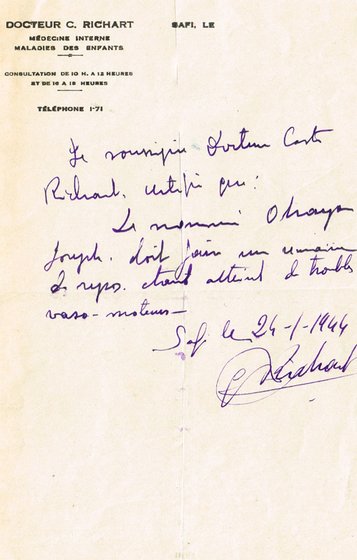 DOCTEUR C. RICHART
SAFI, LE
MÉDECINE INTERNE
MALADIES DES ENFANTS
CONSULTATION DE 10 H. A 12 HEURES
ET DE 16 A 18 HEURES
TÉLÉPHONE 1-71
Je soussigné Docteur
Richart, certifie que :
Le nommé Ohayon
Joseph. doit faire une semaine
de repos. étant atteint de troubles
vaso-moteurs -
Safi le 24-1-1944
C Richart